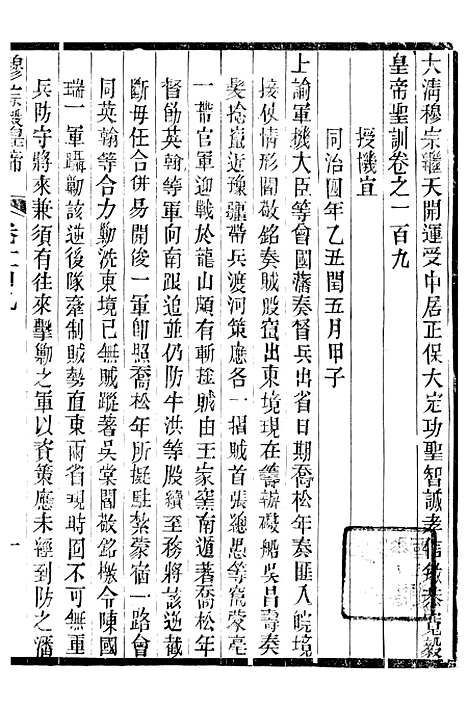 大清穆宗繼天開運受中居正保大定功聖智誠孝信敏恭寬毅
皇帝聖訓卷之一百九
授機宜
同治四年乙丑閏五月甲子
上諭軍機大臣等曾國藩奏督兵出省日期喬松年奏匪入皖境
接仗情形閻敬銘奏賊股竄出東境現在籌辦礮船吳昌壽奏
髮捻竄近豫疆帶兵渡河策應各一摺賊首張總愚等竄蒙亳
一帶官軍迎戰於龍山頗有斬擒賊由王家窰南遁著喬松年
督飭英翰等軍向南跟追並仍防牛洪等股續至務將該逆截
斷毋任合併易開俊一軍卽照喬松年所擬駐紮蒙宿一路會
同英翰等合力勦洗東境已無賊蹤著吳棠閻敬銘檄令陳國
瑞一軍躡勦該逆後隊牽制賊勢直東兩省現時固已無重
兵防守將來兼須有往來擊勦之軍以資策應未經到防之潘
穆宗毅皇帝
卷一百九
一